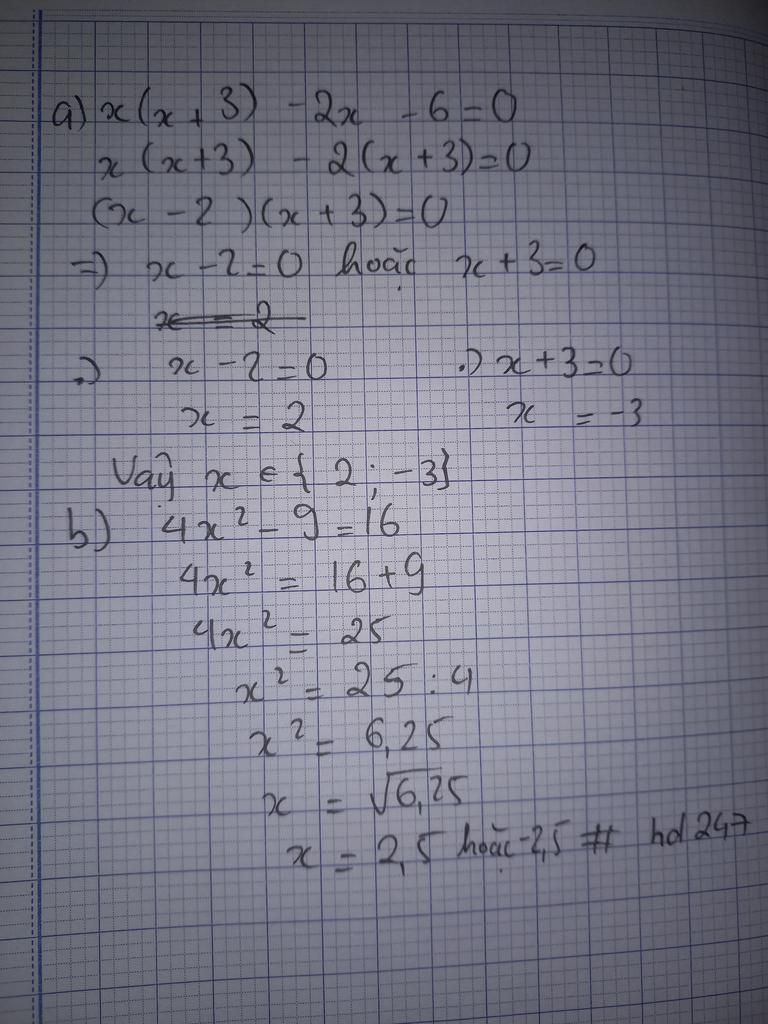 a) x(x + 3) - 2x - 6 = 0
x(x+3) - 2(x+3)=0
(x - 2)(x + 3)=0
=> x - 2 = 0 hoặc x + 3 = 0
x = 2
.) x - 2 = 0 .) x + 3 = 0
x = 2 x = -3
Vậy x ∈ { 2 ; -3}
b) 4x² - 9 = 16
4x² = 16 + 9
4x² = 25
x² = 25 : 4
x² = 6,25
x = √6,25
x = 2,5 hoặc -2,5 # hd247